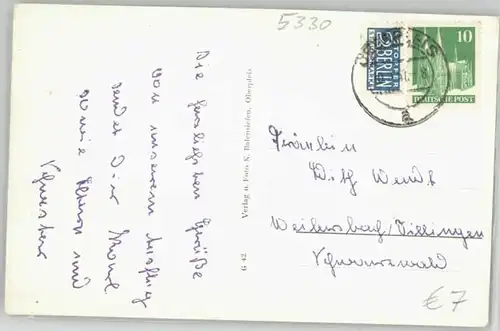 5330
Die herzlichsten Grüße
von unserem Ausflug
sendet Dir
sowie Eltern und
Schwester
Verlag u. Foto K. Balensiefen, Oberpleis
G 42
NOTOPFER
2 BERLIN
STEUERMARKE
10
DEUTSCHE POST
OBERPLEIS
a
Fräulein
Weilersbach/Villingen
Schwarzwald
€ 7